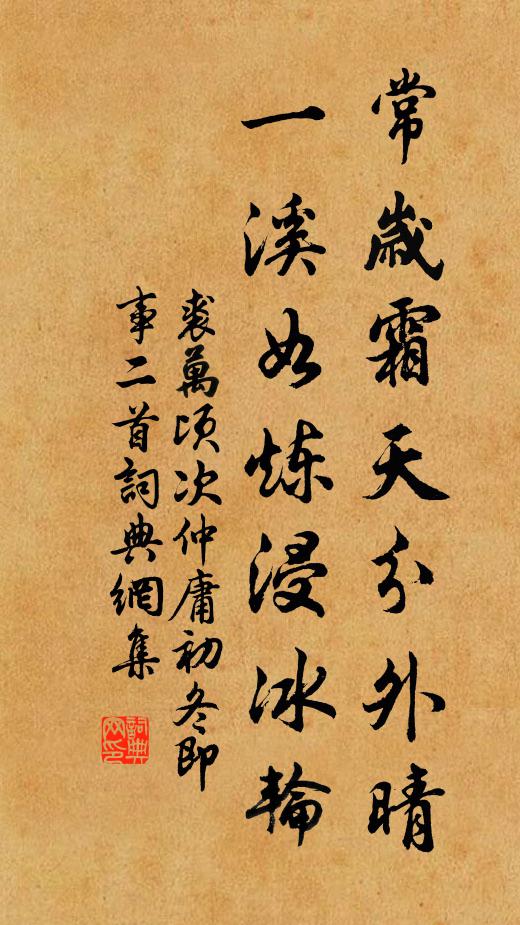 常歲霜天分外晴
一溪如煉浸冰輪
裘萬頃次仲庸初冬即
事二首詞典網集
詞典網印